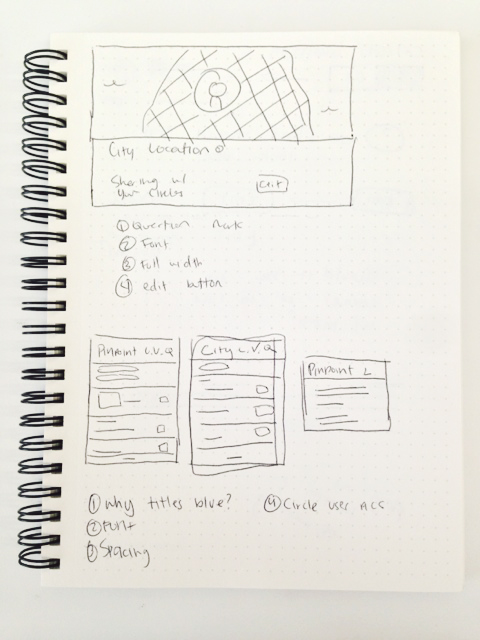 City Location
Sharing w/
your circles
Edit
① Question Mark
② Font
③ Full width
④ edit button
Pinpoint L.V.Q
City L.V.Q
Pinpoint L
① Why titles blue?
④ Circle user Acc
② Font
③ Spacing